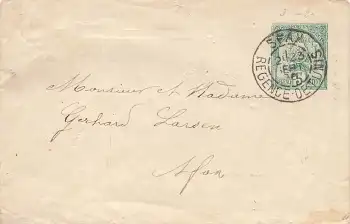 SFAX
RÉGENCE DE TUNIS
Monsieur et Madame
Gerhard Larsen
Sfax